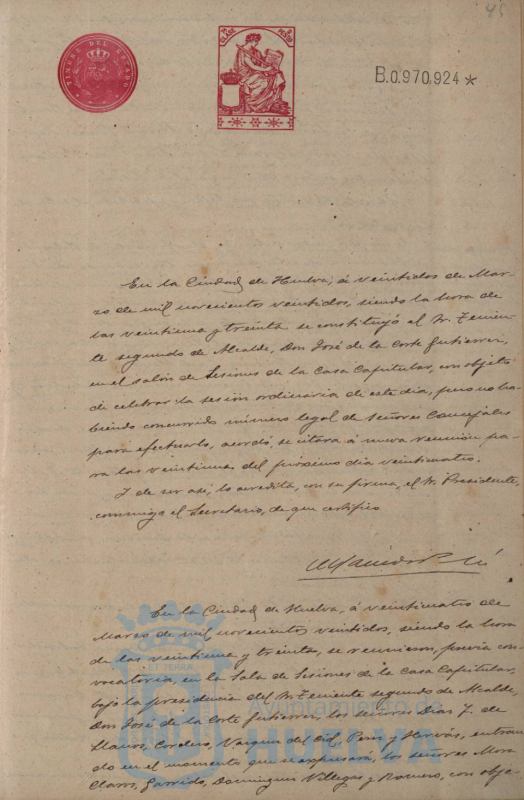 45
TIMBRE DEL ESTADO
CLASE
PESETA
B.0.970.924 *
En la Ciudad de Huelva, á veintidos de Mar-
zo de mil novecientos veintidos, siendo la hora de
las veintiuna y treinta se constituyó el Sr. Tenien-
te segundo de Alcalde, Don José de la Corte Gutierrez,
en el salón de Sesiones de la Casa Capitular, con objeto
de celebrar la sesión ordinaria de este dia, pero no ha-
biendo concurrido número legal de señores Concejales
para efectuarlo, acordó, se citara á nueva reunión pa-
ra las veintiuna del próximo dia veinticuatro.
Y de ser asi, lo acredita, con su firma, el Sr. Presidente,
conmigo el Secretario, de que certifico
En la Ciudad de Huelva, á veinticuatro de
Marzo de mil novecientos veintidos, siendo la hora
de las veintiuna y treinta, se reunieron, previa con-
vocatoria, en la Sala de Sesiones de la Casa Capitular,
bajo la presidencia del Sr. Teniente segundo de Alcalde,
Don José de la Corte Gutierrez, los señores Diaz F. de
Llanos, Cordero, Vazquez del Cid, Pons y Hervás, entran-
do en el momento que se expresará, los señores Mora
Claros, Garrido, Dominguez Villegas y Romero, con obje-
Ayuntamiento de
HUELVA